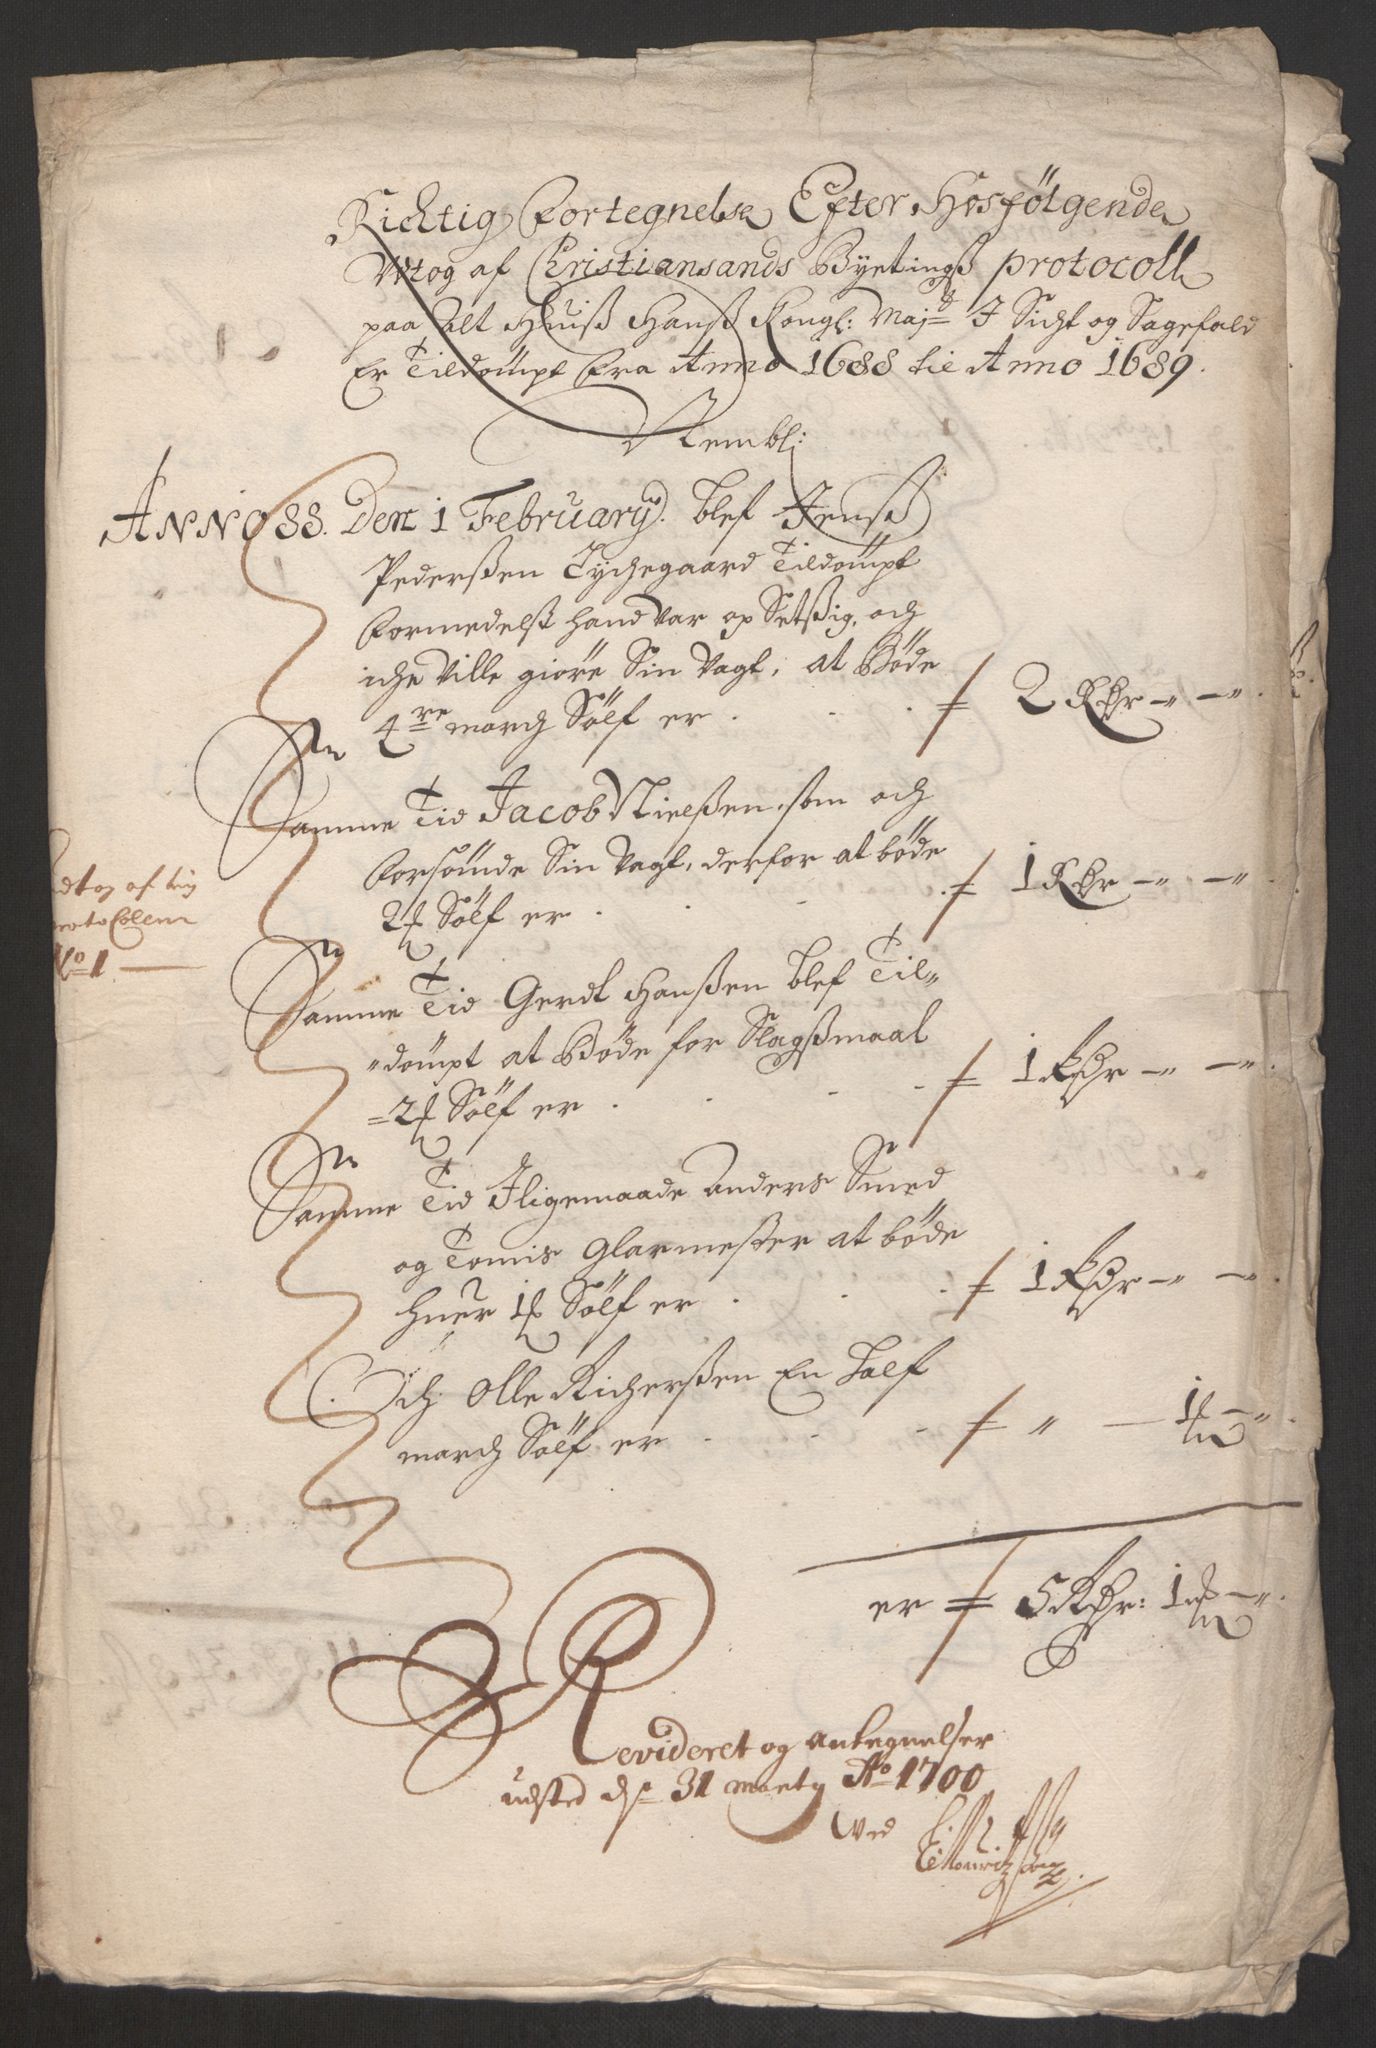 Richtig Fortegnelse Efter Hosfölgende
Vdtog af Christiansands Byetingß protocoll
paa Alt Huiß Hanß Kongl: Maj: I Sicht og Sagefald
Er Tildömpt Fra Anno 1688 til Anno 1689.
Nembl:
ANNO 88. Den 1 February. blef Jenß
Pederßen Tychegaard Tildömpt
Formedelst hand var op Setßig, och
iche Ville giöre Sin Vagt, at Böde
4re march Sölf er . . . 2 Rdr - -
Samme Tid Jacob Nielßen, som och
Forsömde Sin Vagt, derfor at böde
2 Sölf er . . . 1 Rdr - -
Samme Tid Gerdt Hanßen blef Til-
dömpt at Böde for Slagßmaal
2 Sölf er . . . 1 Rdr - -
Samme Tid Iligemaade Anders Smed
og Tomis Glarmester at böde
huer 1 Sölf er . . . 1 Rdr - -
Och Olle Richerßen En half
march Sölf er . . . " - 1 -
er 5 Rdr: 1 -
udtog af ting
protocollen
No 1
Revideret og antegnelser
udsted d. 31 marty Ao 1700
Ved